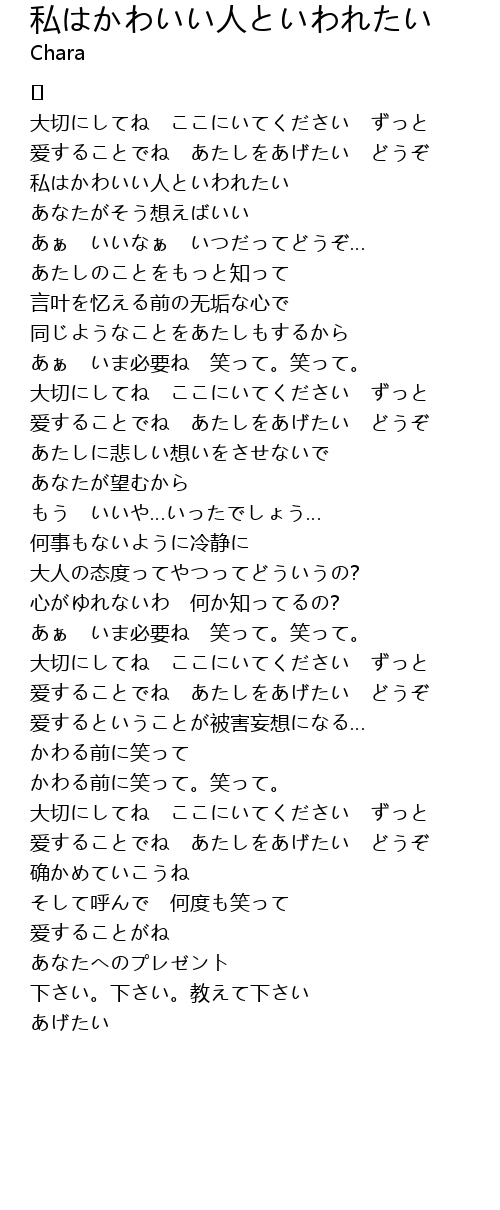 私はかわいい人といわれたい
Chara
[]
大切にしてね　ここにいてください　ずっと
爱することでね　あたしをあげたい　どうぞ
私はかわいい人といわれたい
あなたがそう想えばいい
あぁ　いいなぁ　いつだってどうぞ…
あたしのことをもっと知って
言叶を忆える前の无垢な心で
同じようなことをあたしもするから
あぁ　いま必要ね　笑って。笑って。
大切にしてね　ここにいてください　ずっと
爱することでね　あたしをあげたい　どうぞ
あたしに悲しい想いをさせないで
あなたが望むから
もう　いいや…いったでしょう…
何事もないように冷静に
大人の态度ってやつってどういうの?
心がゆれないわ　何か知ってるの?
あぁ　いま必要ね　笑って。笑って。
大切にしてね　ここにいてください　ずっと
爱することでね　あたしをあげたい　どうぞ
爱するということが被害妄想になる…
かわる前に笑って
かわる前に笑って。笑って。
大切にしてね　ここにいてください　ずっと
爱することでね　あたしをあげたい　どうぞ
确かめていこうね
そして呼んで　何度も笑って
爱することがね
あなたへのプレゼント
下さい。下さい。教えて下さい
あげたい